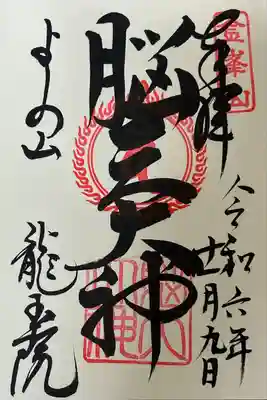 奉拝
金峯山
令和六年
十一月九日
脳天大神
よしの山
龍王院